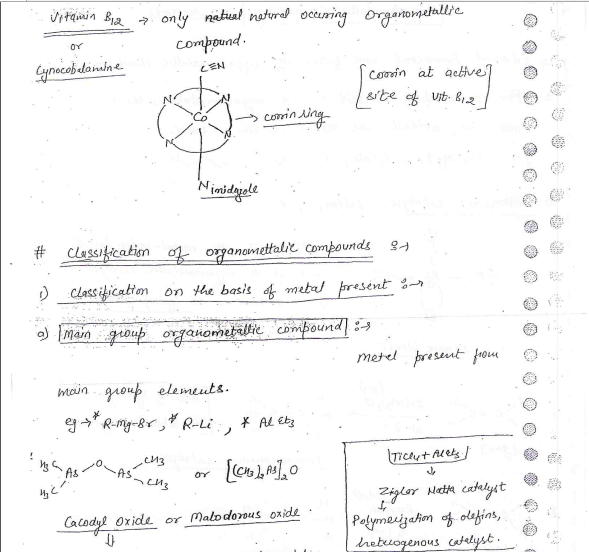 Vitamin B12 → only natual natural occuring Organometallic
or compound.
Cynocobalamine
C≡N
[corrin at active
site of Vit. B12]
N N
Co → corrin ring
N N
N imidazole
# Classification of organomettalic compounds :→
1) Classification on the basis of metal present :→
a) Main group organometallic compound :→
metal present from
main group elements.
eg →* R-Mg-Br, * R-Li, * AlEt3
H3C O CH3
As As or [(CH3)2As]2O
H3C CH3
Cacodyl oxide or Malodorous oxide.
⇓
TiCl4 + AlEt3
↓
Ziglor Natta catalyst
↓
Polymerization of olefins,
heteuogenous catalyst.